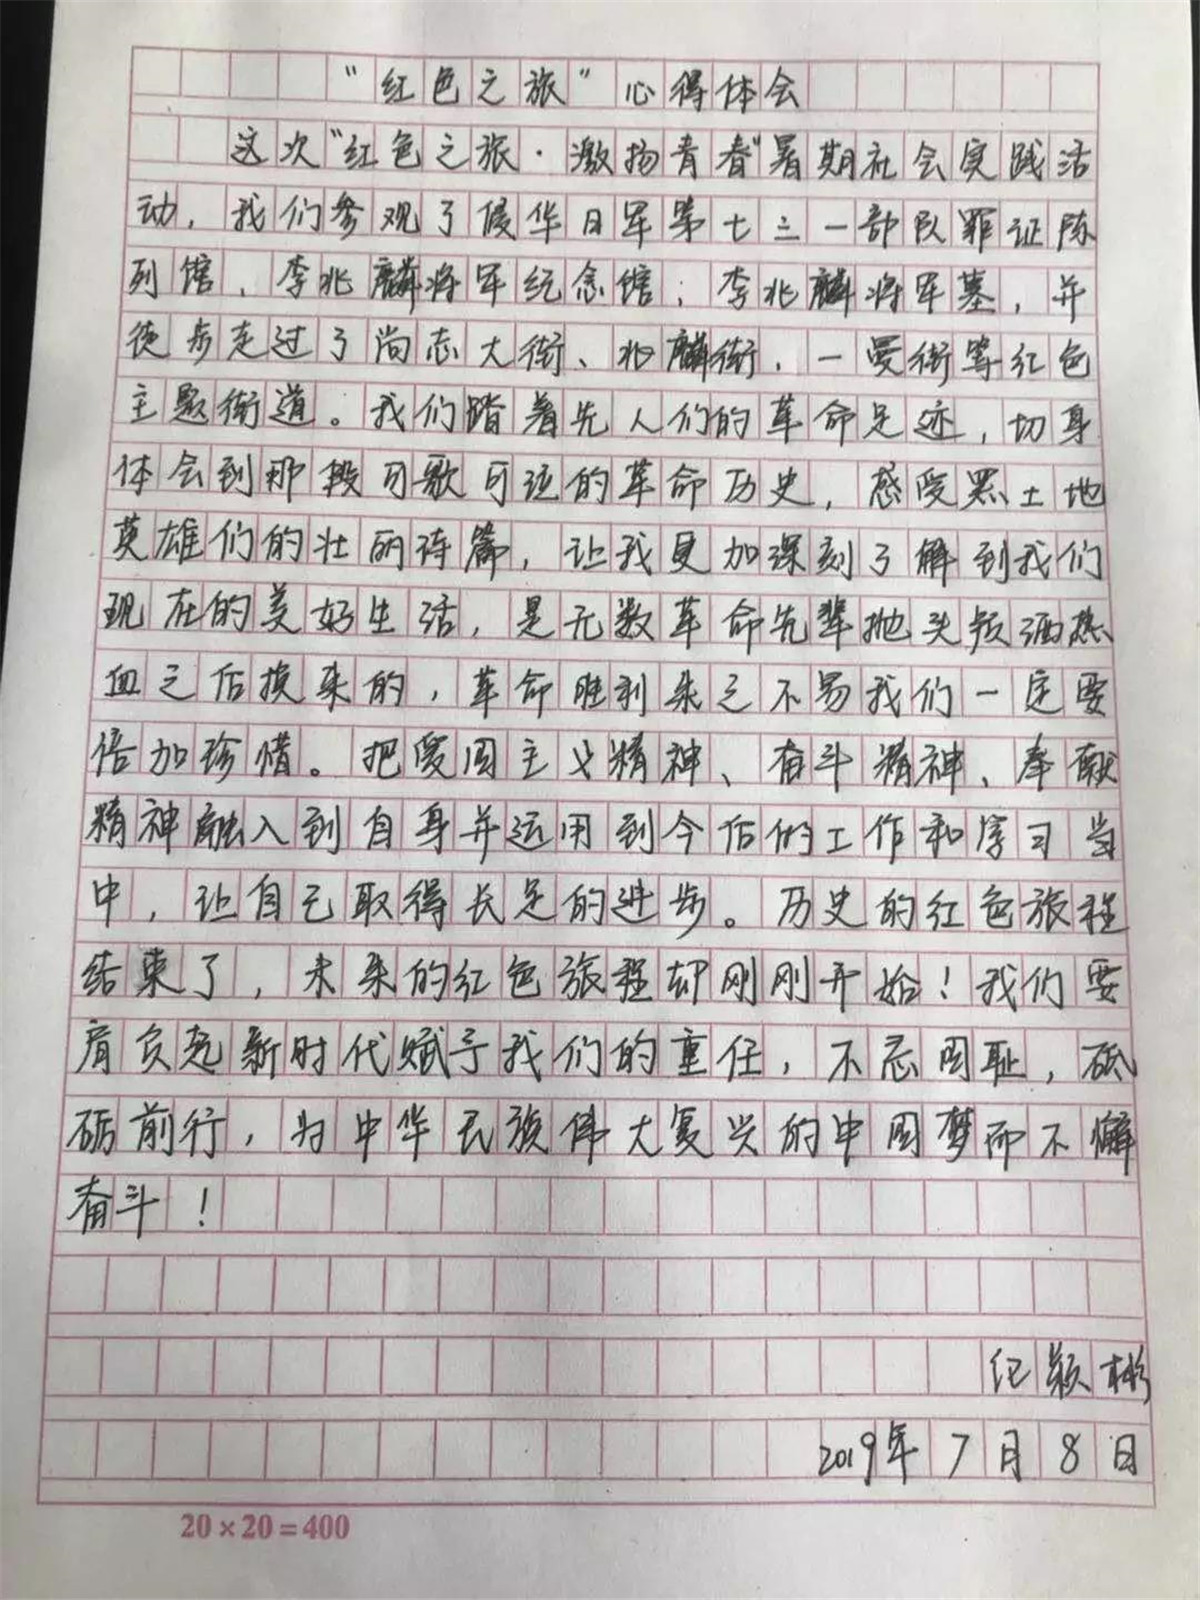 “红色之旅”心得体会
这次“红色之旅·激扬青春”暑期社会实践活
动，我们参观了侵华日军第七三一部队罪证陈
列馆、李兆麟将军纪念馆；李兆麟将军墓，并
徒步走过了尚志大街、兆麟街，一曼街等红色
主题街道。我们踏着先人们的革命足迹，切身
体会到那段可歌可泣的革命历史，感受黑土地
英雄们的壮丽诗篇，让我更加深刻了解到我们
现在的美好生活，是无数革命先辈抛头颅洒热
血之后换来的，革命胜利来之不易我们一定要
倍加珍惜。把爱国主义精神、奋斗精神、奉献
精神融入到自身并运用到今后的工作和学习当
中，让自己取得长足的进步。历史的红色旅程
结束了，未来的红色旅程却刚刚开始！我们要
肩负起新时代赋予我们的重任，不忘国耻，砥
砺前行，为中华民族伟大复兴的中国梦而不懈
奋斗！
纪颖彬
2019年7月8日
20×20=400